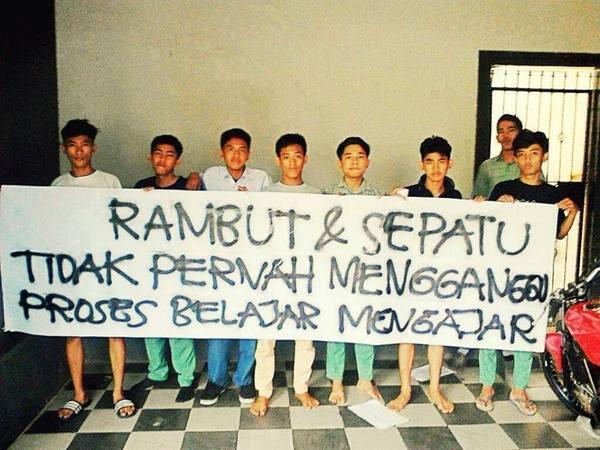 RAMBUT & SEPATU
TIDAK PERNAH MENGGANGGU
PROSES BELAJAR MENGAJAR